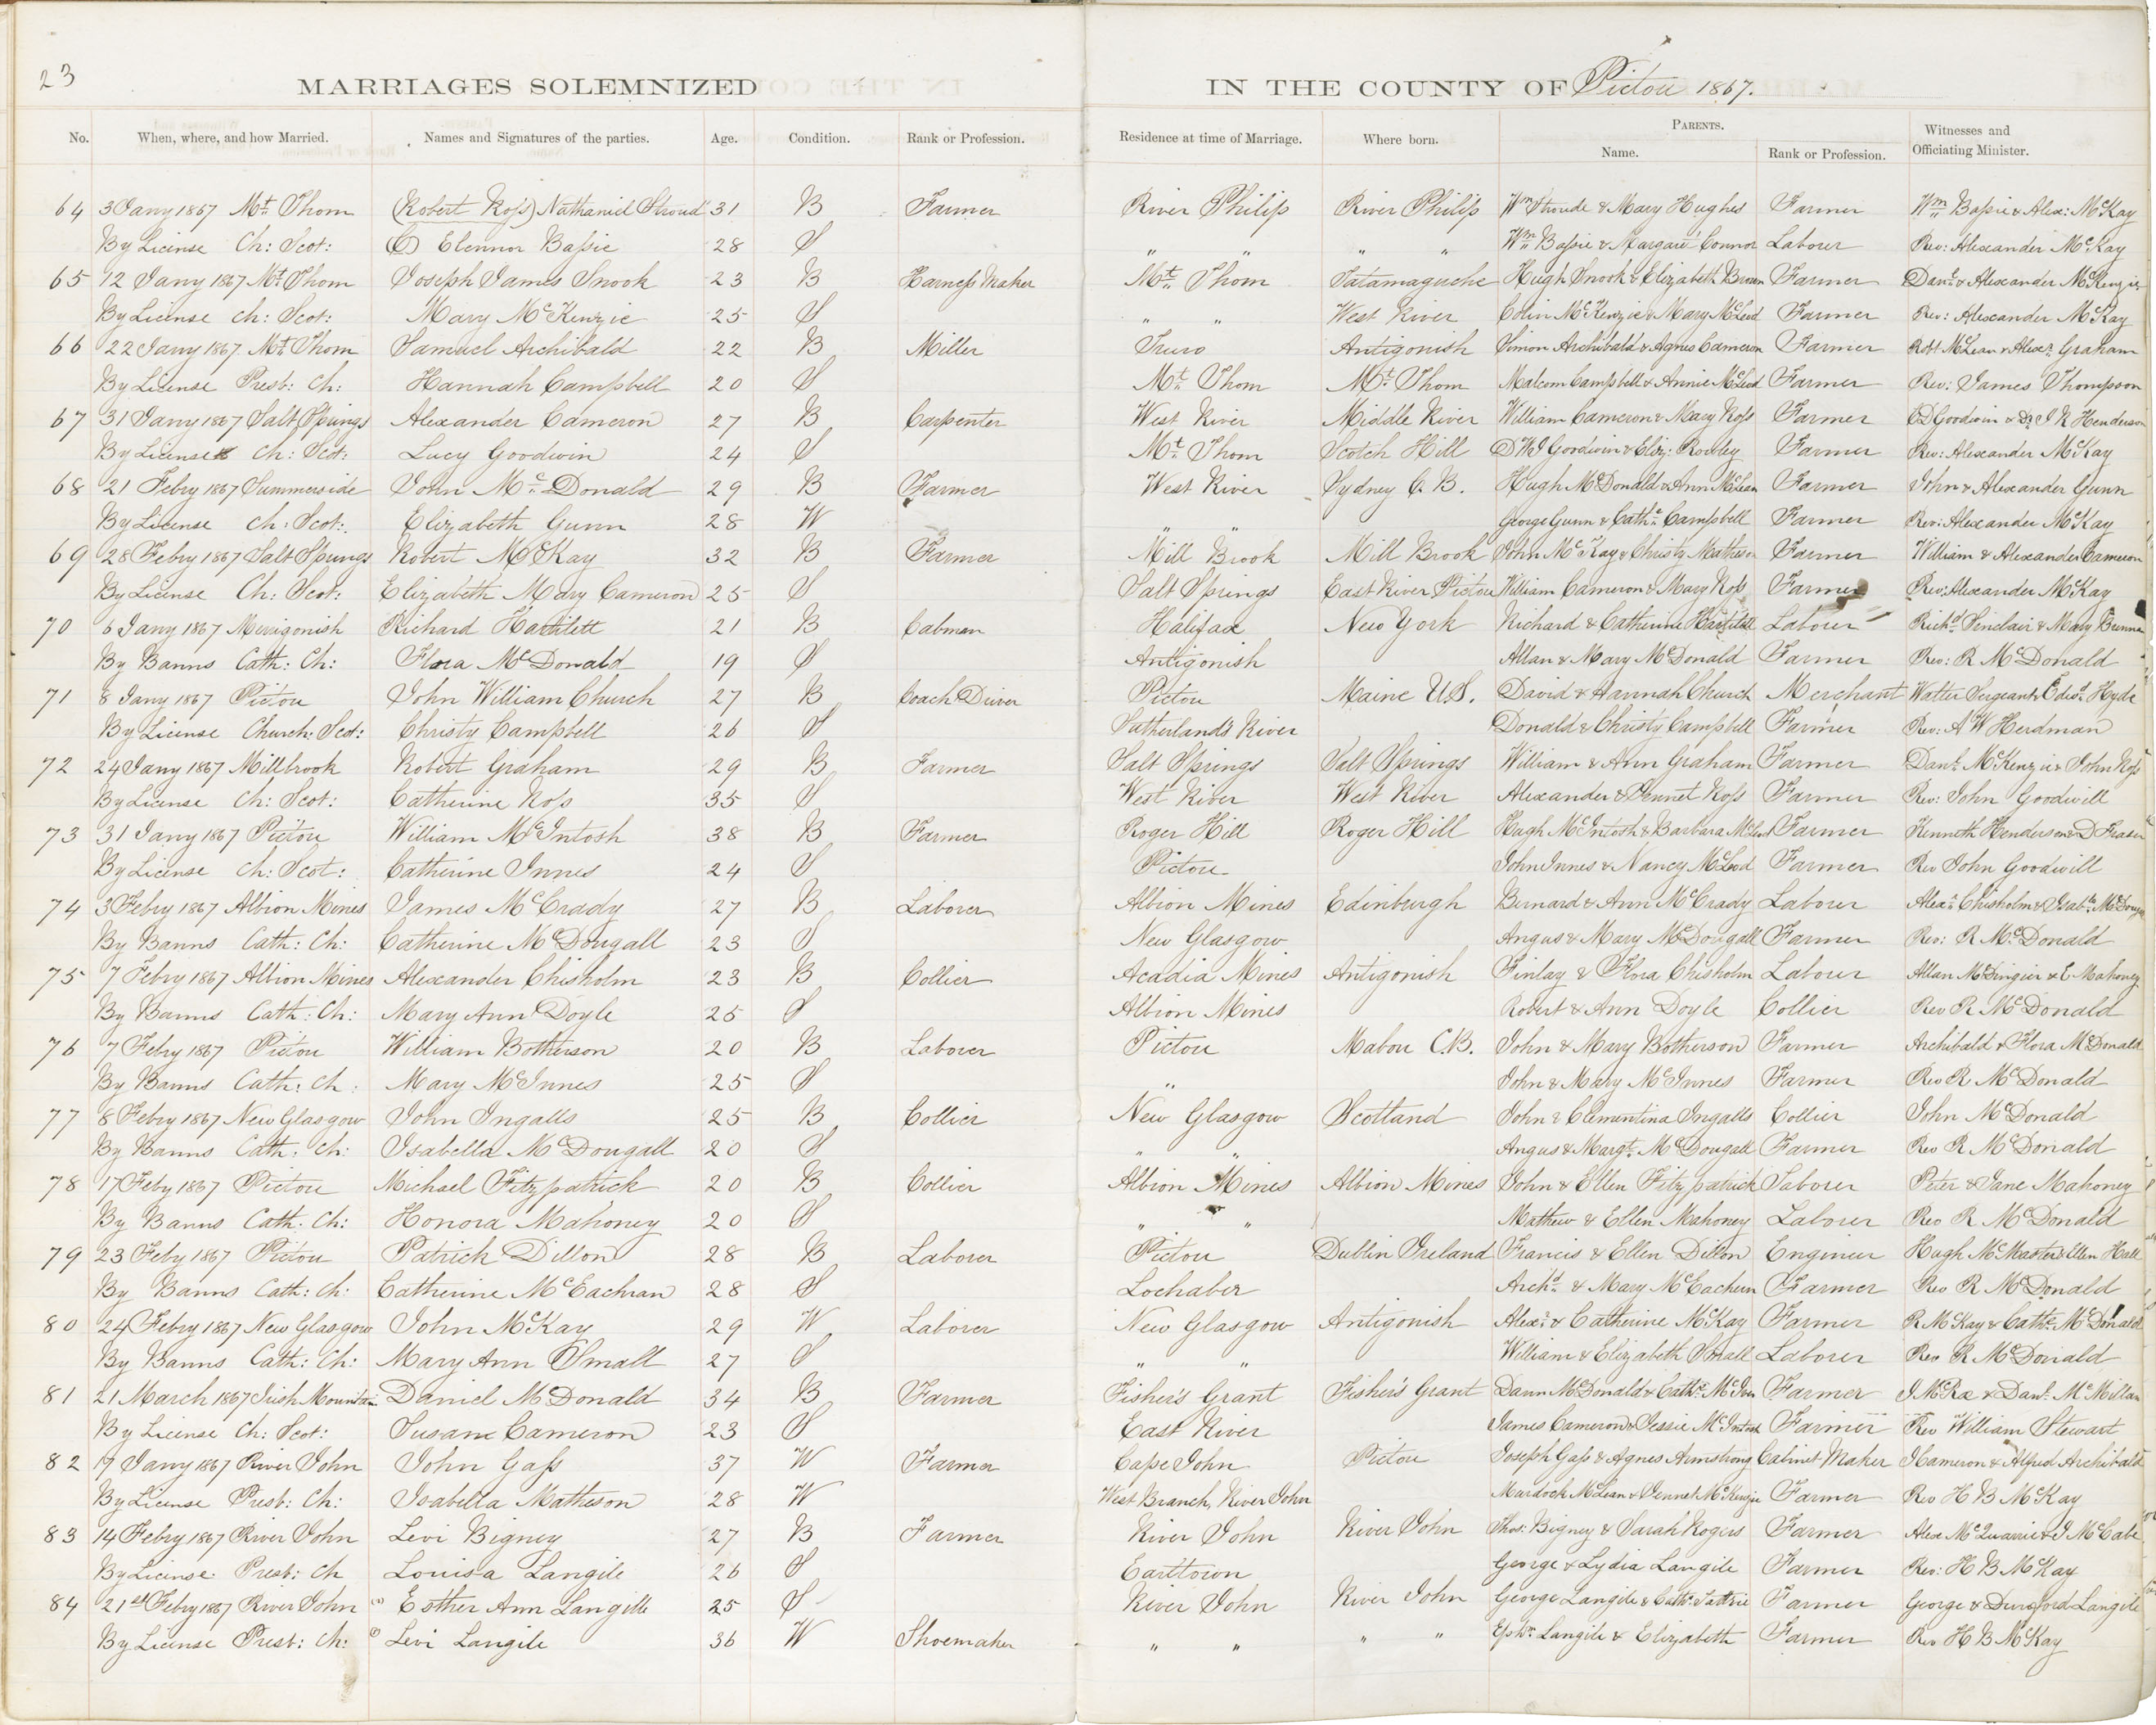 23
MARRIAGES SOLEMNIZED IN THE COUNTY OF Pictou 1867.
No. When, where, and how Married. Names and Signatures of the parties. Age. Condition. Rank or Profession. Residence at time of Marriage. Where born. PARENTS. Name. Rank or Profession. Witnesses and Officiating Minister.
64 3 Jany 1867 Mt Thom (Robert Ross) Nathaniel Stroud 31 B Farmer River Philip River Philip Wm Stroude & Mary Hughes Farmer Wm Bassie & Alex: McKay
By License Ch: Scot: Elennor Bassie 28 S " " " " Wm Bassie & Margaret Connor Laborer Rev: Alexander McKay
65 12 Jany 1867 Mt Thom Joseph James Snook 23 B Harness Maker Mt Thom Tatamagouche Hugh Snook & Elizabeth Brown Farmer Danl & Alexander McKenzie
By License Ch: Scot: Mary McKenzie 25 S " " West River Colin McKenzie & Mary McLeod Farmer Rev: Alexander McKay
66 22 Jany 1867 Mt Thom Samuel Archibald 22 B Miller Truro Antigonish Simon Archibald & Agnes Cameron Farmer Robt McLean & Alexr Graham
By License Presb: Ch: Hannah Campbell 20 S Mt Thom Mt Thom Malcom Campbell & Annie McLeod Farmer Rev: James Thompson
67 31 Jany 1867 Salt Springs Alexander Cameron 27 B Carpenter West River Middle River William Cameron & Mary Ross Farmer Goodwin & Dr J R Henderson
By License Ch: Scot: Lucy Goodwin 24 S Mt Thom Scotch Hill Goodwin & Eliz: Rowley Farmer Rev: Alexander McKay
68 21 Febry 1867 Summerside John McDonald 29 B Farmer West River Sydney C. B. Hugh McDonald & Ann McLean Farmer John & Alexander Gunn
By License Ch: Scot: Elizabeth Gunn 28 W " " George Gunn & Cathe Campbell Farmer Rev: Alexander McKay
69 28 Febry 1867 Salt Springs Robert McKay 32 B Farmer Mill Brook Mill Brook John McKay & Christy Matheson Farmer William & Alexander Cameron
By License Ch: Scot: Elizabeth Mary Cameron 25 S Salt Springs East River Pictou William Cameron & Mary Ross Farmer Rev: Alexander McKay
70 6 Jany 1867 Merigonish Richard Hartilett 21 B Cabman Halifax New York Richard & Catherine Laborer Richd Sinclair & Mary
By Banns Cath: Ch: Flora McDonald 19 S Antigonish Allan & Mary McDonald Farmer Rev: R McDonald
71 8 Jany 1867 Pictou John William Church 27 B Coach Driver Pictou Maine U.S. David & Hannah Church Merchant Walter Sergeant & Edwd Hyde
By License Church: Scot: Christy Campbell 26 S Sutherland's River Donald & Christy Campbell Farmer Rev: A W Herdman
72 24 Jany 1867 Millbrook Robert Graham 29 B Farmer Salt Springs Salt Springs William & Ann Graham Farmer Danl McKenzie & John Ross
By License Ch: Scot: Catherine Ross 35 S West River West River Alexander & Jennet Ross Farmer Rev: John Goodwill
73 31 Jany 1867 Pictou William McIntosh 38 B Farmer Roger Hill Roger Hill Hugh McIntosh & Barbara McLeod Farmer Kenneth Henderson & D Fraser
By License Ch: Scot: Catherine Innes 24 S Pictou John Innes & Nancy McLeod Farmer Rev John Goodwill
74 3 Febry 1867 Albion Mines James McCrady 27 B Laborer Albion Mines Edinburgh Bernard & Ann McCrady Laborer Alexr Chisholm & Isabla McDougall
By Banns Cath: Ch: Catherine McDougall 23 S New Glasgow Angus & Mary McDougall Farmer Rev: R McDonald
75 7 Febry 1867 Albion Mines Alexander Chisholm 23 B Collier Acadia Mines Antigonish Finlay & Flora Chisholm Laborer Allan & C Mahoney
By Banns Cath: Ch: Mary Ann Doyle 25 S Albion Mines Robert & Ann Doyle Collier Rev R McDonald
76 7 Febry 1867 Pictou William Botherson 20 B Laborer Pictou Mabou C.B. John & Mary Botherson Farmer Archibald & Flora McDonald
By Banns Cath: Ch: Mary McInnes 25 S " John & Mary McInnes Farmer Rev R McDonald
77 8 Febry 1867 New Glasgow John Ingalls 25 B Collier New Glasgow Scotland John & Clementina Ingalls Collier John McDonald
By Banns Cath: Ch: Isabella McDougall 20 S " " Angus & Margt McDougall Farmer Rev R McDonald
78 17 Feby 1867 Pictou Michael Fitzpatrick 20 B Collier Albion Mines Albion Mines John & Ellen Fitzpatrick Laborer Peter & Jane Mahoney
By Banns Cath. Ch: Honora Mahoney 20 S " " Mathew & Ellen Mahoney Laborer Rev R McDonald
79 23 Feby 1867 Pictou Patrick Dillon 28 B Laborer Pictou Dublin Ireland Francis & Ellen Dillon Engineer Hugh McMaster & Ellen Hall
By Banns Cath: Ch: Catherine McEachran 28 S Lochaber Archd & Mary McEachern Farmer Rev R McDonald
80 24 Febry 1867 New Glasgow John McKay 29 W Laborer New Glasgow Antigonish Alexr & Catherine McKay Farmer R McKay & Cathe McDonald
By Banns Cath: Ch: Mary Ann Small 27 S " " William & Elizabeth Small Laborer Rev R McDonald
81 21 March 1867 Irish Mountain Daniel McDonald 34 B Farmer Fisher's Grant Fisher's Grant Dann McDonald & Cathe Farmer J McRa & Danl McMillan
By License Ch: Scot: Susan Cameron 23 S East River James Cameron & Jessie McIntosh Farmer Rev William Stewart
82 17 Jany 1867 River John John Gass 37 W Farmer Cape John Pictou Joseph Gass & Agnes Armstrong Cabinet Maker J Cameron & Alfred Archibald
By License Presb: Ch: Isabella Matheson 28 W West Branch, River John Murdoch McLean & Jennet McKenzie Farmer Rev H B McKay
83 14 Febry 1867 River John Levi Bigney 27 B Farmer River John River John Thos: Bigney & Sarah Rogers Farmer Alex McQuarrie & J McCabe
By License Presb: Ch Louisa Langile 26 S Earltown George & Lydia Langile Farmer Rev: H B McKay
84 21st Febry 1867 River John Esther Ann Langille 25 S River John River John George Langile & Cathe Tattrie Farmer George & Dursford Langile
By License Presb: Ch: Levi Langile 36 W Shoemaker " " " " Ephm Langile & Elizabeth Farmer Rev H B McKay